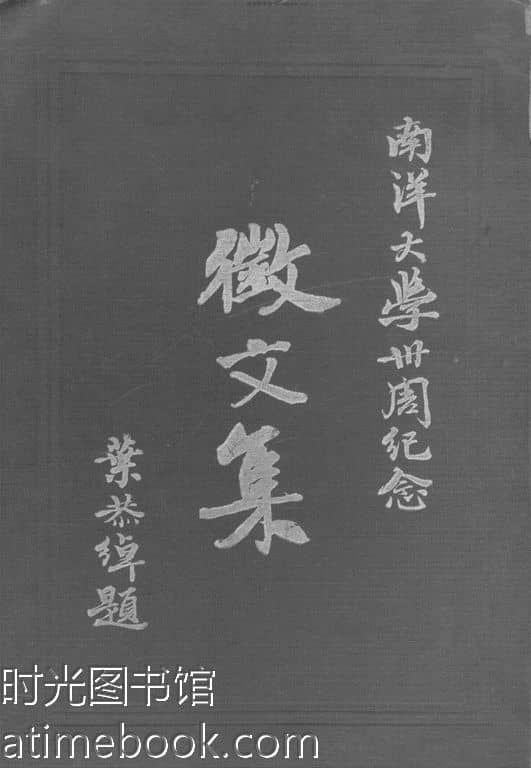 南洋大学卅周纪念
徵文集
葉恭綽題
时光图书馆
atimebook.com